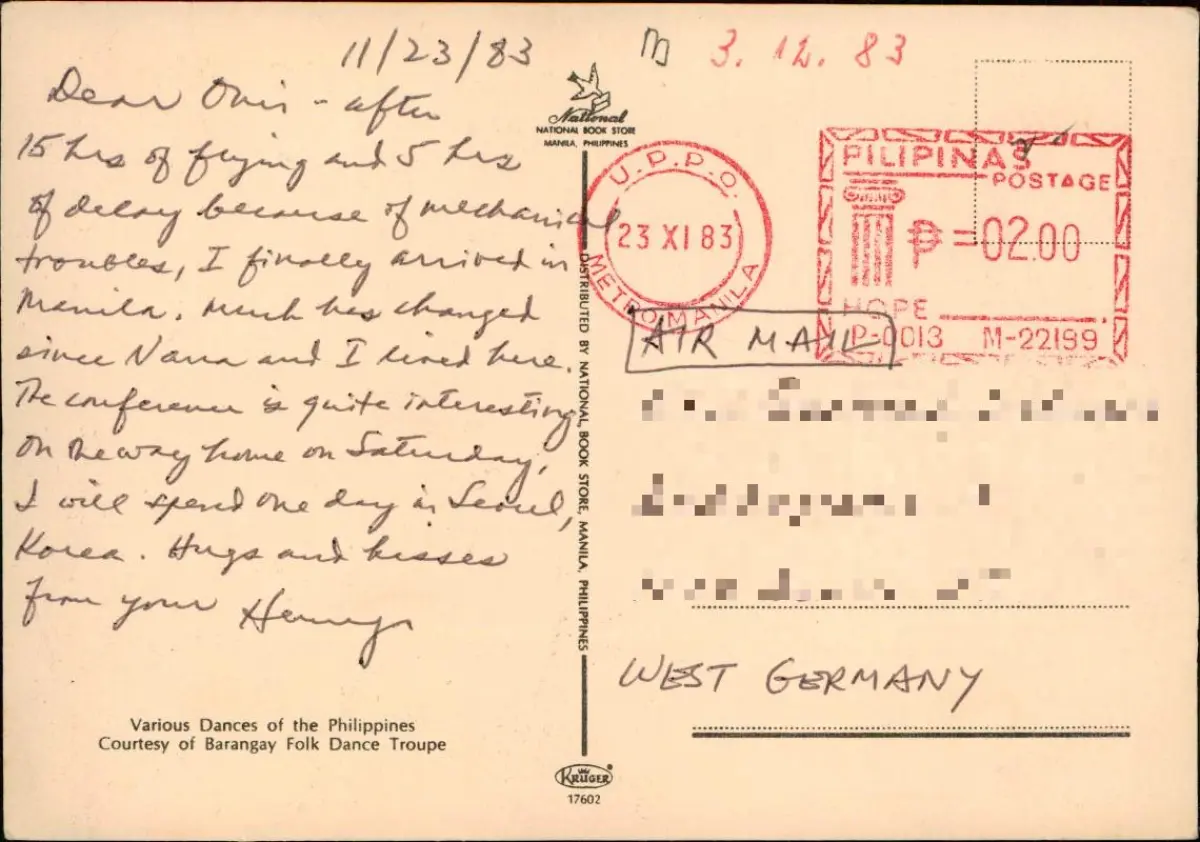 11/23/83
Dear Omi - after
15 hrs of flying and 5 hrs
of delay because of mechanical
troubles, I finally arrived in
Manila. Much has changed
since Nana and I lived here.
The conference is quite interesting
On the way home on Saturday,
I will spend one day in Seoul,
Korea. Hugs and kisses
from your Henry
Various Dances of the Philippines
Courtesy of Barangay Folk Dance Troupe
National
NATIONAL BOOK STORE
MANILA, PHILIPPINES
DISTRIBUTED BY NATIONAL BOOK STORE, MANILA, PHILIPPINES
KRÜGER
17602
3. 12. 83
U.P.P.O.
23 XI 83
METRO MANILA
PILIPINAS
POSTAGE
₱=02.00
HOPE
P-0013 M-22199
AIR MAIL
WEST GERMANY